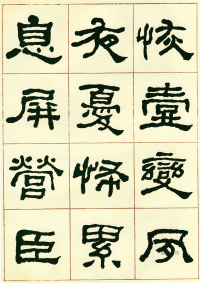 恢壹變夙
夜憂怖累
息屏營臣